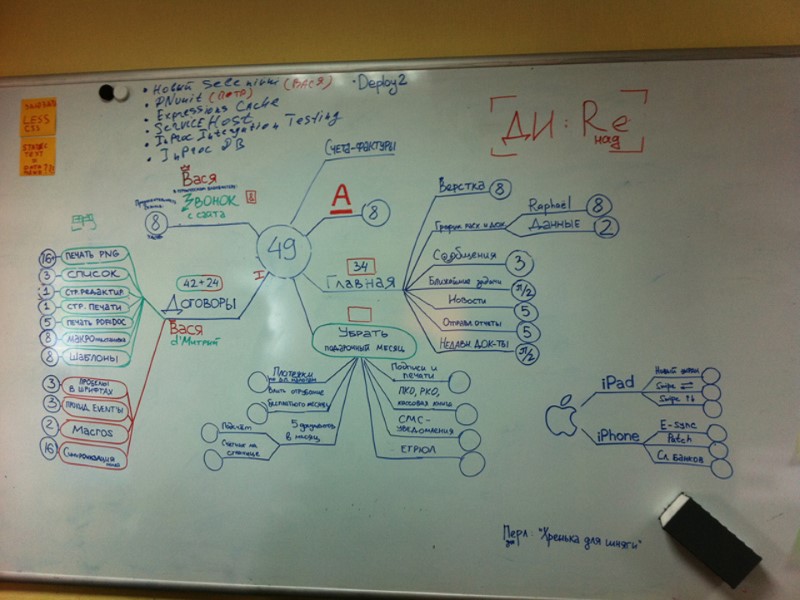 • Новый Selenium (Вася)
• DNunit (Пётр)
• Expressions Cache
• Service Host
• InProc Intergration Testing
• InProc DB
• Deploy2
LESS
CSS
ДИ: Re
над
Счета-фактуры
А
8
Вася
Звонок
с сайта
8
8
49
I
42+24
Договоры
Вася
d'Митрий
16
Печать PNG
3
Список
1
Стр. редактир.
1
Стр. печати
5
Печать PDF&DOC
8
Макро
8
Шаблоны
3
Пробелы
в шрифтах
3
Event'ы
2
Macros
16
Синхронизация
34
Главная
Верстка
8
График расх и дох.
Raphaël
8
Данные
2
Соо́бщения
3
Ближайшие задачи
π/2
Новости
5
Отправл отчеты
5
Недавн. док-ты
π/2
Убрать
подарочный месяц
Платежки
Бесплатного месяца
Подсчет
Счетчик на
странице
5 документов
в месяц
Подписи и
печати
ПКО, РКО,
кассовая книга
СМС-
уведомления
ЕГРЮЛ
iPad
Новый
Swipe ⇄
Swipe ↑↓
iPhone
E-sync
Patch
Сл. Банков
Перл: "Хренька для шняги"